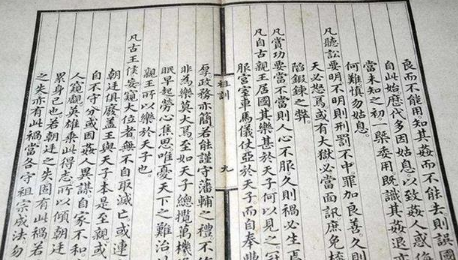 良而不能用知其姦而不能去則誤國
自此始歷代多因姑息以致姦人惑侮
當未知之初一槩委用既識其姦退亦
何難慎勿姑息
凡聽訟要明不明則刑罰不中罪加良善久則
天必怒焉或有大獄必當面訊庶免構
陷鍛鍊之弊
凡賞功要當不當則人心不服久則禍必生焉
凡自古親王居國其樂甚於天子何以見之冠
服宮室車馬儀仗亞於天子而自奉豐
祖訓
九
厚政務亦簡若能謹守藩輔之禮不作
非為樂莫大焉至如天子總攬萬機
眠早起勞心焦思唯憂天下之難治
親王所以樂於天子也
凡古王侯妄窺大位者無不自取滅亡或連
朝廷俱廢蓋王與天子本是至親或因
自不守分或因姦人異謀自家不和
人窺覷英雄乘此得志所以傾朝廷
累身己也若朝廷之失固有此禍若
之失亦有此禍當各守祖宗成法勿